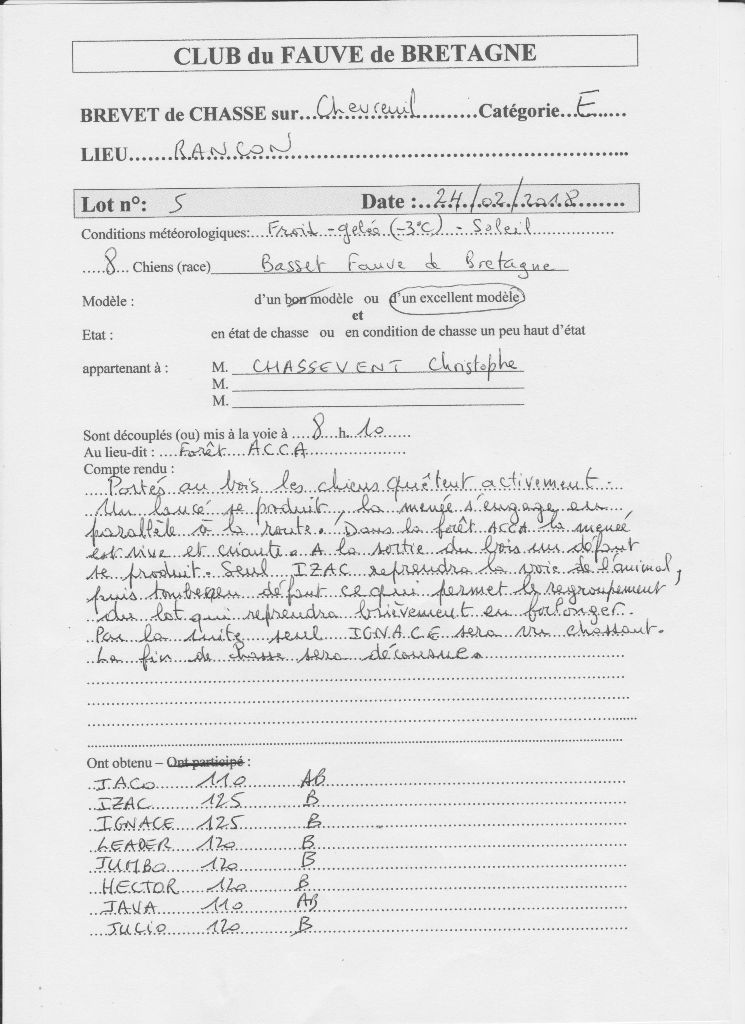 CLUB du FAUVE de BRETAGNE
BREVET de CHASSE sur...Chevreuil...Catégorie...E...
LIEU...RANCON...
Lot n°: 5 Date :...24/02/2018...
Conditions météorologiques:...Froid - gelée (-3°C) - Soleil...
...8... Chiens (race) Basset Fauve de Bretagne
Modèle : d'un bon modèle ou d'un excellent modèle
et
Etat : en état de chasse ou en condition de chasse un peu haut d'état
appartenant à : M. CHASSEVENT Christophe
M.
M.
Sont découplés (ou) mis à la voie à ...8...h...10...
Au lieu-dit : ...Forêt ACCA...
Compte rendu :
Portés au bois les chiens quêtent activement.
Un lancé se produit, la menée s'engage en
parallèle à la route. Dans la forêt ACCA la menée
est vive et criante. A la sortie du bois un défaut
se produit. Seul IZAC reprendra la voie de l'animal,
puis tombe en défaut ce qui permet le regroupement
du lot qui reprendra brièvement en forlonger.
Par la suite seul IGNACE sera vu chassant.
La fin de chasse sera décousue.
Ont obtenu – Ont participé :
JACO 110 AB
IZAC 125 B
IGNACE 125 B
LEADER 120 B
JUMBO 120 B
HECTOR 120 B
JAVA 110 AB
JUCIO 120 B